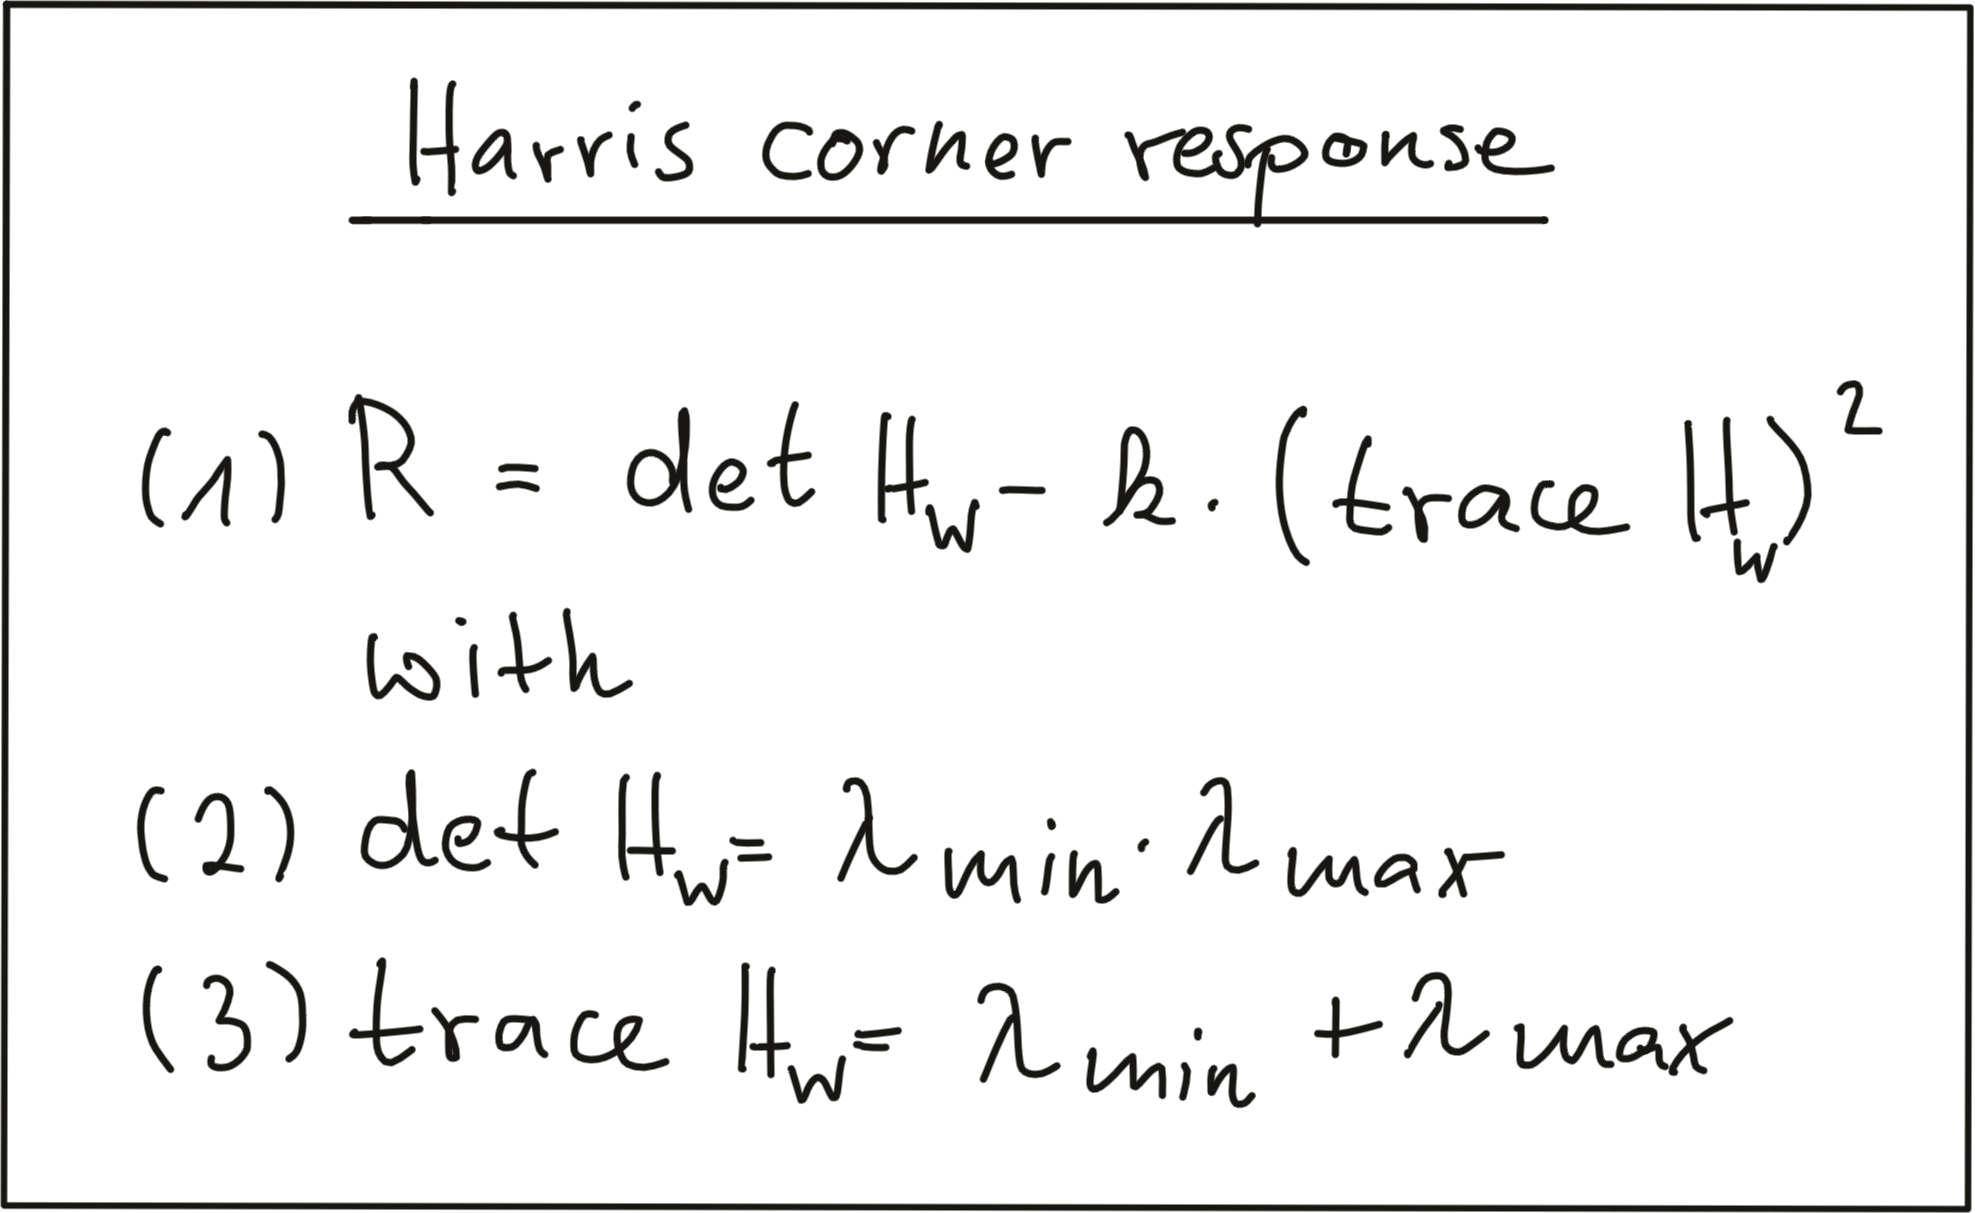 Harris corner response
(1) R = det H_W - k · (trace H_W)²
with
(2) det H_W = λ_min · λ_max
(3) trace H_W = λ_min + λ_max